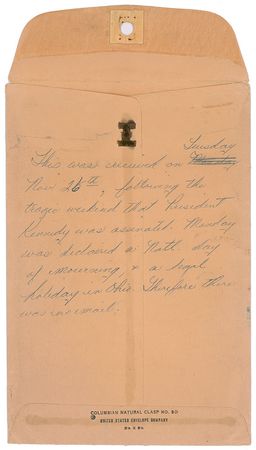 Tuesday
This was received on Monday
Nov 26th, following the
tragic weekend that President
Kennedy was assinated. Monday
was declared a Natl. day
of mourning & a legal
holiday in Ohio. Therefore there
was no mail.
COLUMBIAN NATURAL CLASP NO. 80
UNITED STATES ENVELOPE COMPANY